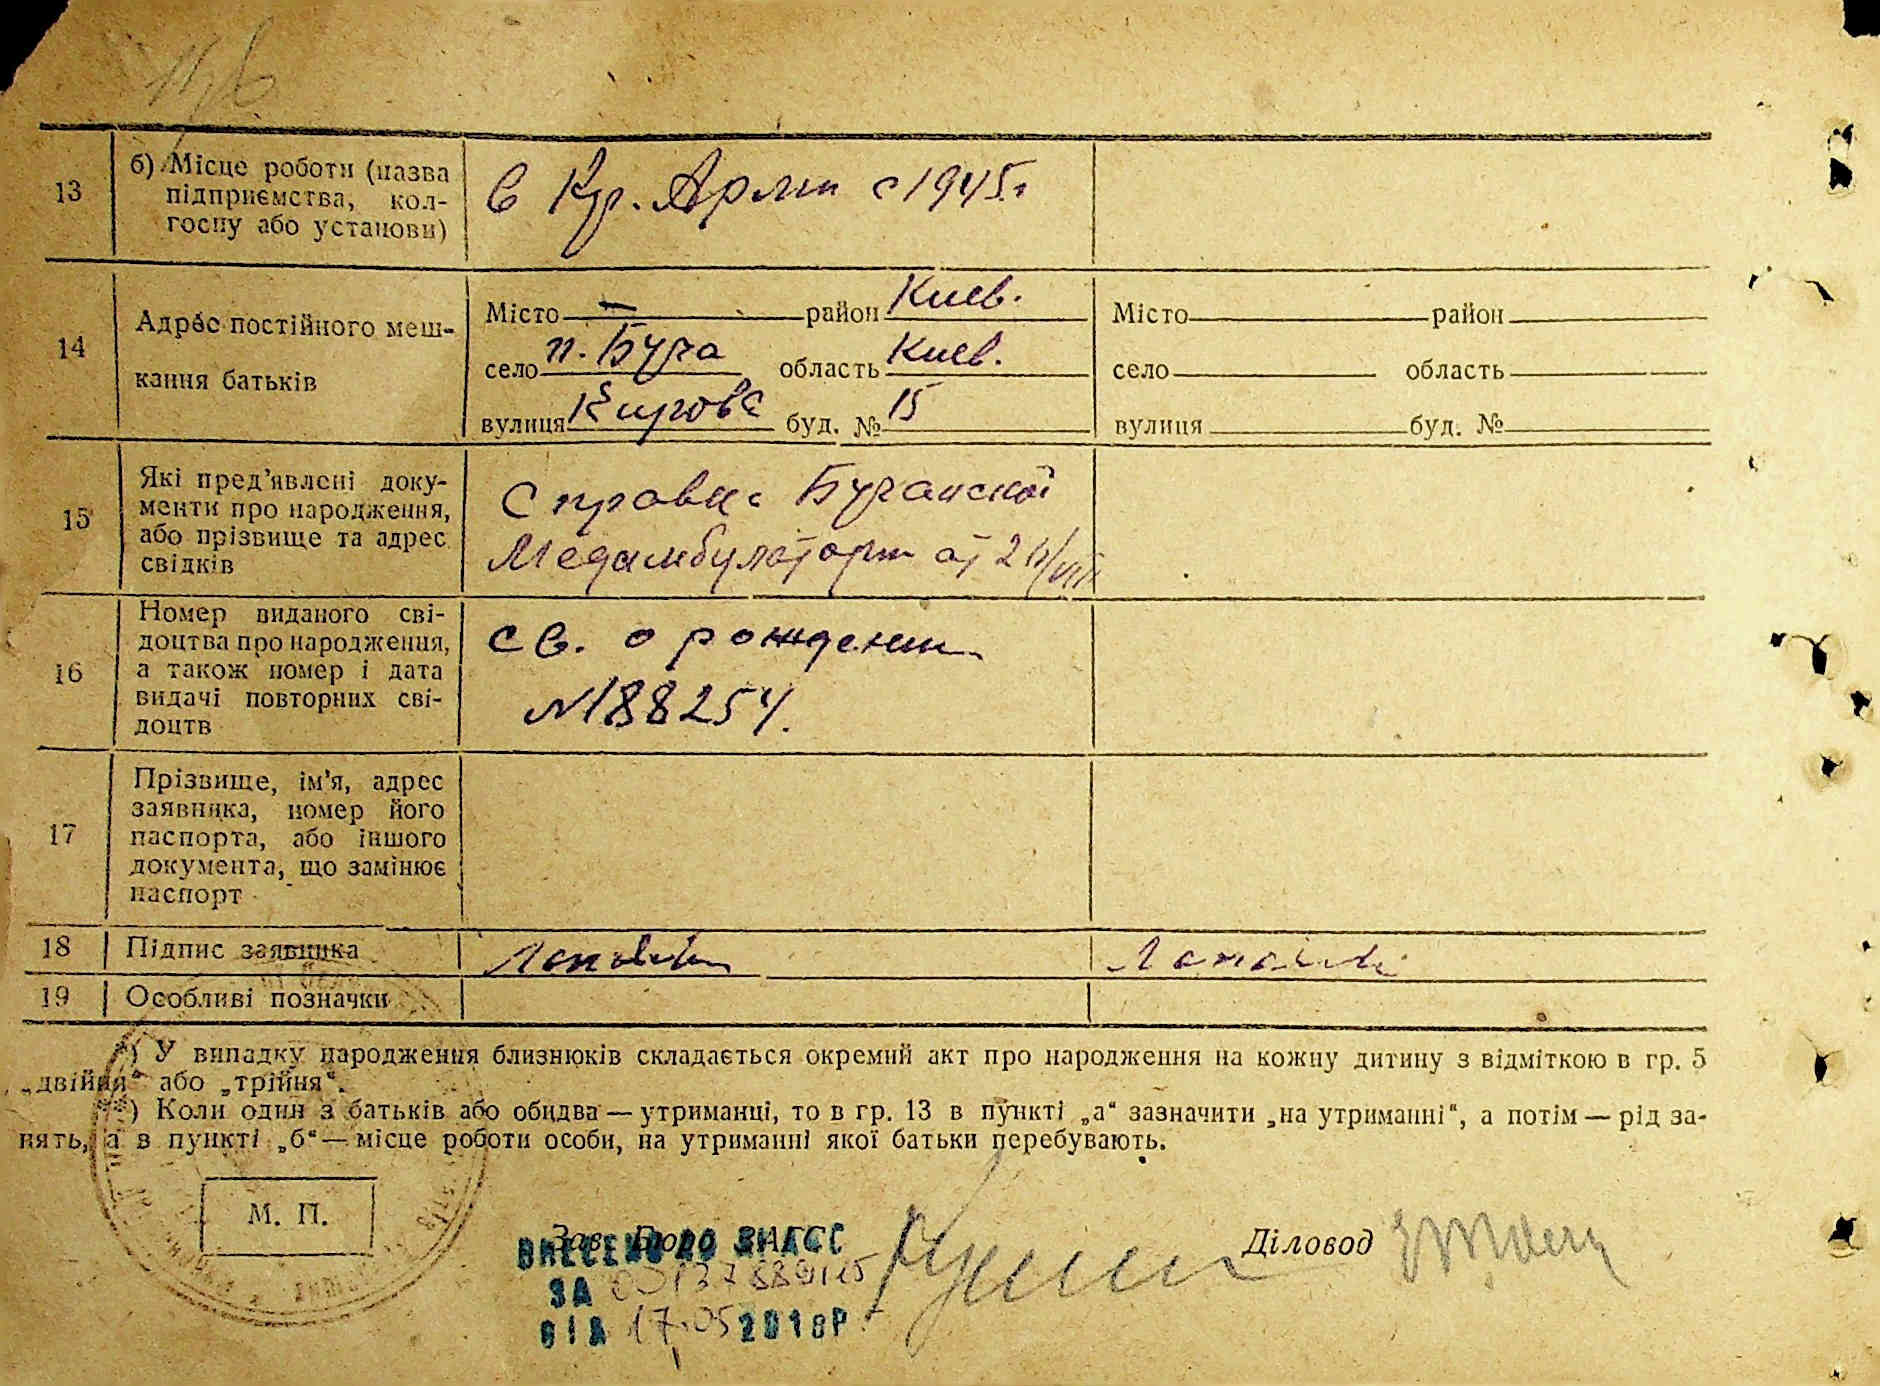 13
б) Місце роботи (назва
підприємства, кол-
госпу або установи)
в Кр. Армии с 1945 г
14
Адрес постійного меш-
кання батьків
Місто — район Киев.
село п. Буча область Киев.
вулиця Кирова буд. № 15
Місто район
село область
вулиця буд. №
15
Які пред'явлені доку-
менти про народження,
або прізвище та адрес
свідків
Справка Бучанской
Медамбулатории от
16
Номер виданого сві-
доцтва про народження,
а також номер і дата
видачі повторних сві-
доцтв
св. о рождении
N188254.
17
Прізвище, ім'я, адрес
заявника, номер його
паспорта, або іншого
документа, що замінює
паспорт
18
Підпис заявника
19
Особливі позначки
*) У випадку народження близнюків складається окремий акт про народження на кожну дитину з відміткою в гр. 5
„двійня“ або „трійня“.
**) Коли один з батьків або обидва — утриманці, то в гр. 13 в пункті „а“ зазначити „на утриманні“, а потім — рід за-
нять, а в пункті „б“ — місце роботи особи, на утриманні якої батьки перебувають.
М. П.
Зав. Бюро ЗАГС
Діловод
ВНЕСЕНО ДО
ЗА
ВІД 17.05 2018Р